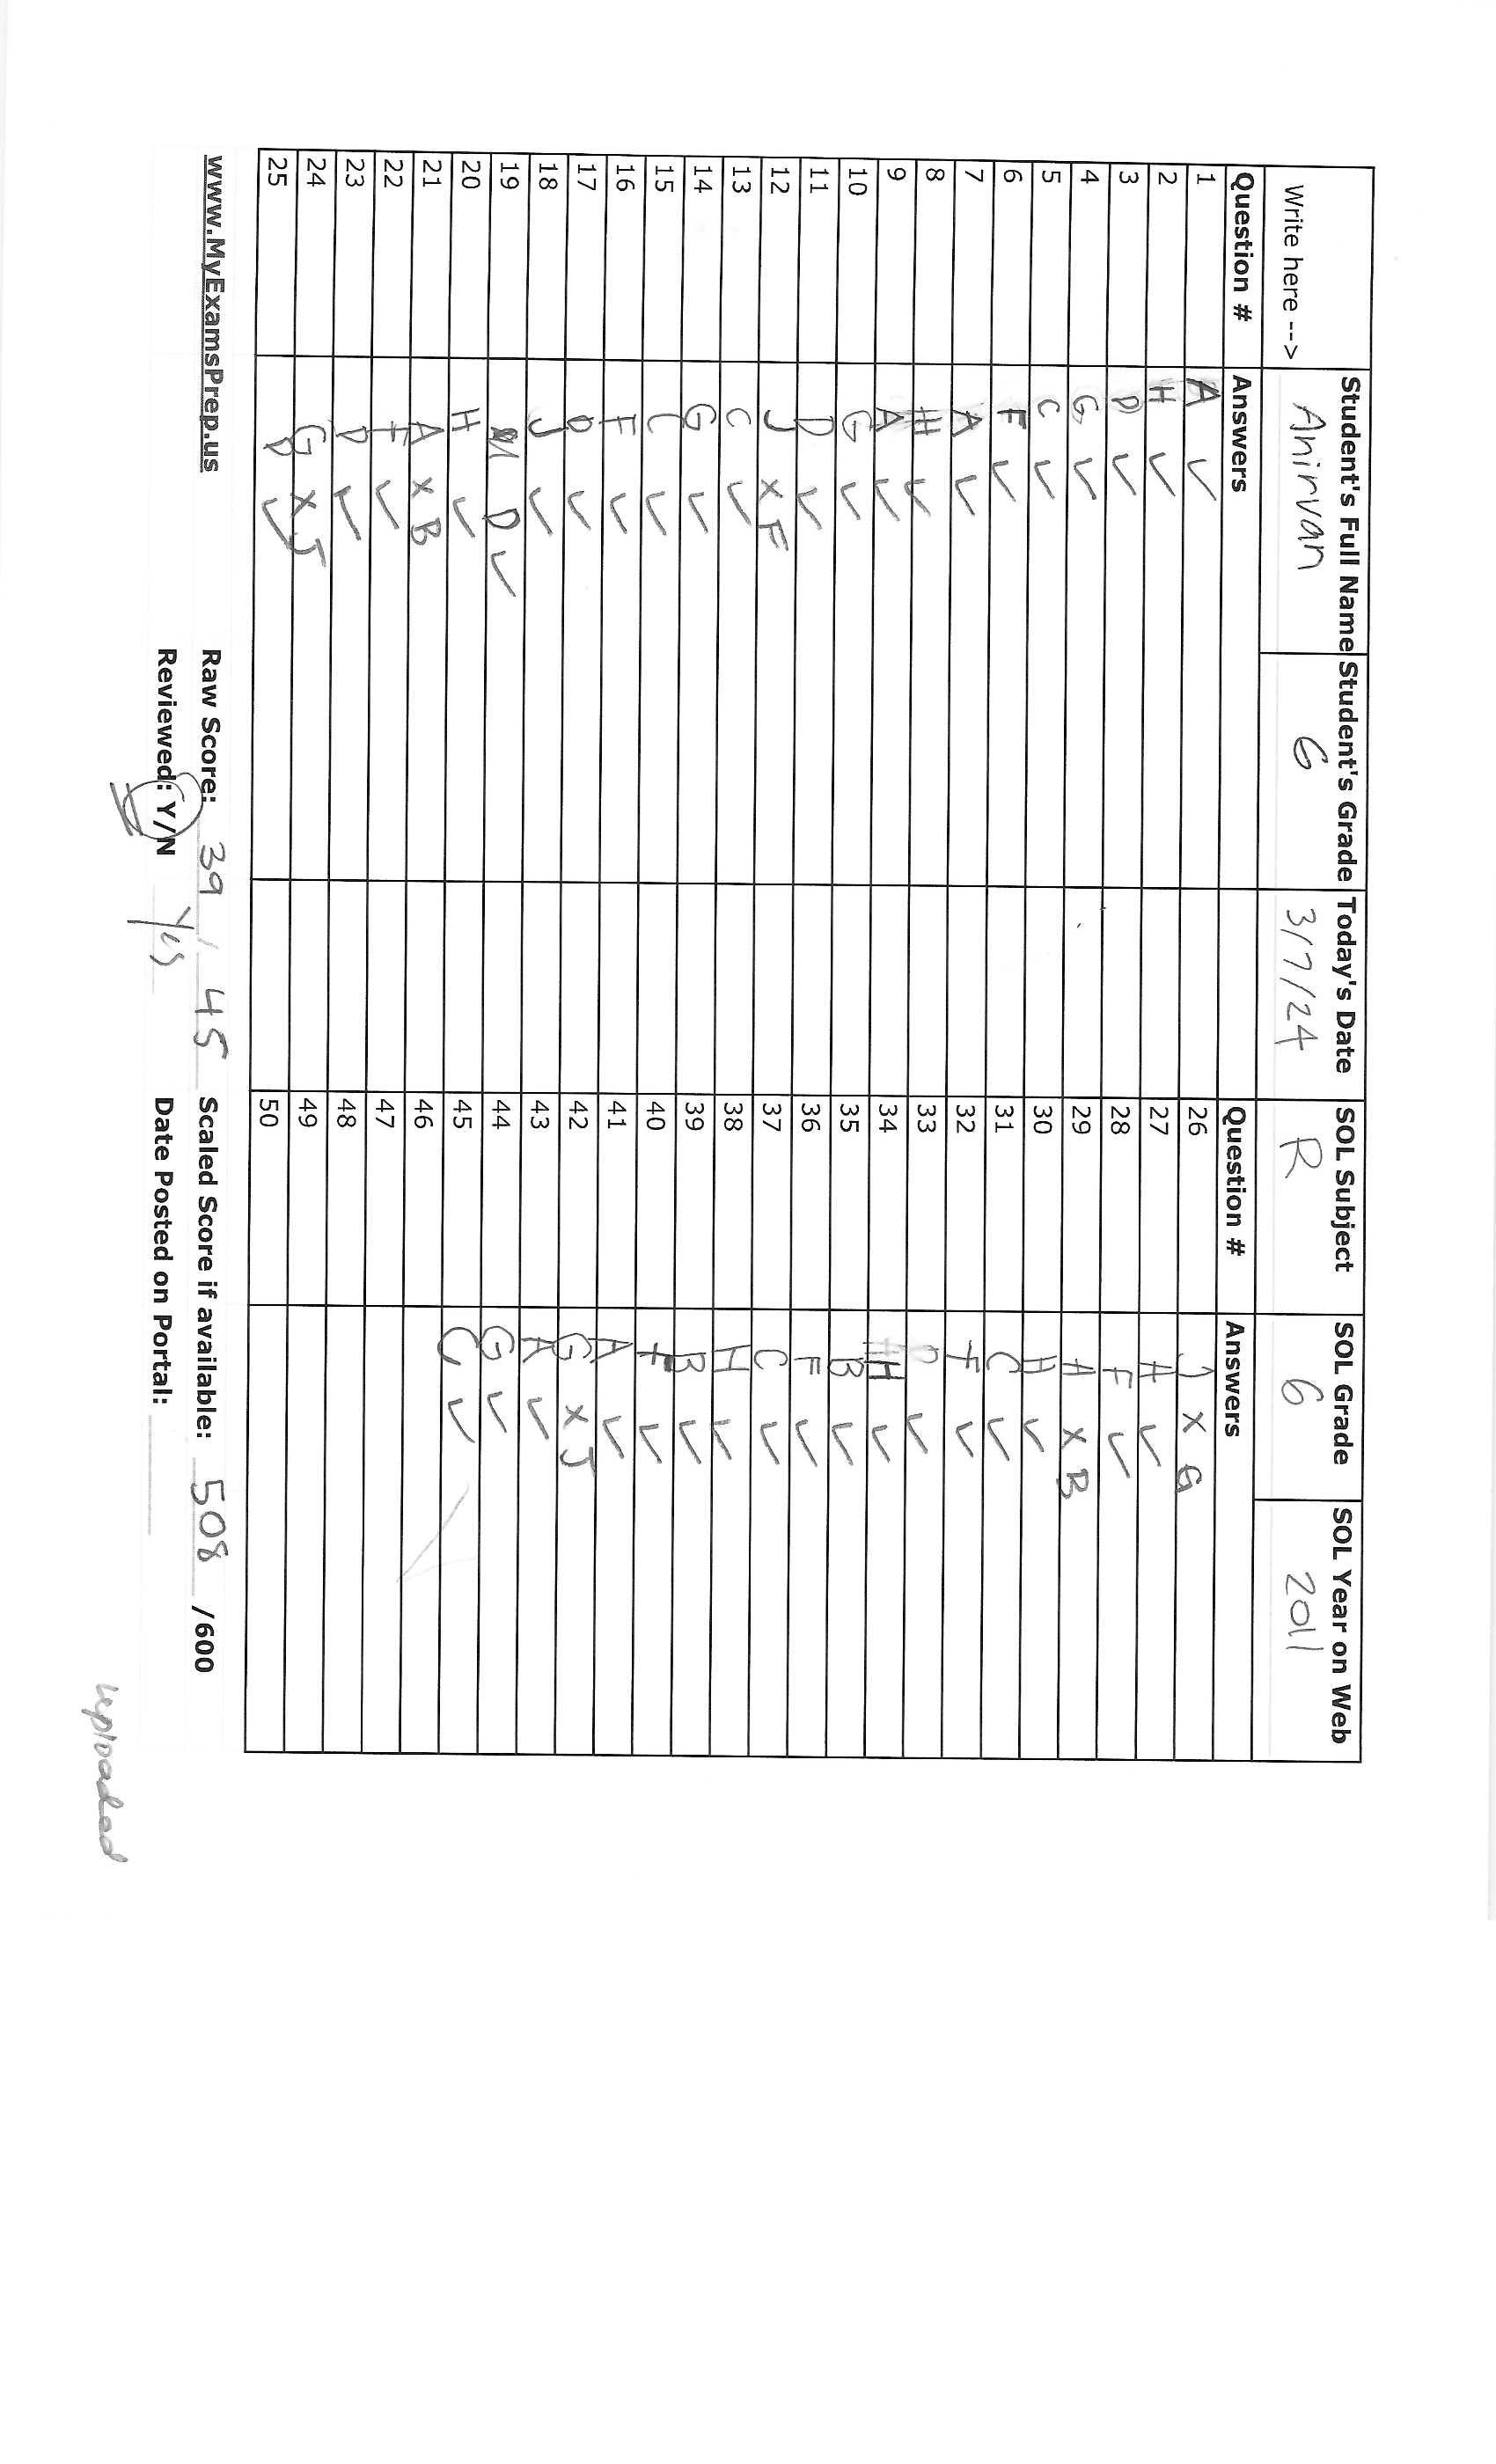 Student's Full Name Student's Grade Today's Date SOL Subject SOL Grade SOL Year on Web
Write here --> Anirvan 6 3/7/24 R 6 2011
Question # Answers Question # Answers
1 A ✓ 26 J x G
2 H ✓ 27 A ✓
3 D ✓ 28 F ✓
4 G ✓ 29 A x B
5 C ✓ 30 H ✓
6 F ✓ 31 C ✓
7 A ✓ 32 F ✓
8 H ✓ 33 ✓
9 A ✓ 34 H ✓
10 G ✓ 35 B ✓
11 D ✓ 36 F ✓
12 J x F 37 C ✓
13 C ✓ 38 H ✓
14 G ✓ 39 B ✓
15 C ✓ 40 F ✓
16 F ✓ 41 A ✓
17 D ✓ 42 G x J
18 J ✓ 43 A ✓
19 D ✓ 44 G ✓
20 H ✓ 45 C ✓
21 A x B 46
22 F ✓ 47
23 D ✓ 48
24 G x J 49
25 D ✓ 50
www.MyExamsPrep.us Raw Score: 39 / 45 Scaled Score if available: 508 /600
Reviewed: Y/N Yes Date Posted on Portal:
uploaded